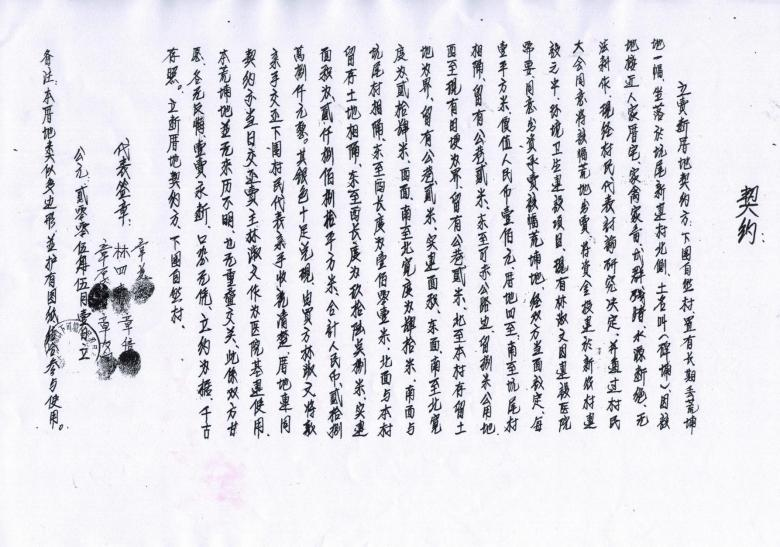 契约:
立卖断厝地契约方:下围自然村置有长期丢荒埔
地一幅,坐落於坑尾新建村北侧,土名叫(碑埔)因该
地接近人家厝宅,家禽家畜成群残踏水源断绝,无
法耕作,现经村民代表讨论研究决定,并通过村民
大会同意将该幅荒地出卖,将资金投建於新农村建
设之中,环境卫生建设项目,现有林淑文因建设医院
需要,同意出资承卖该幅荒埔地,经双方当面议定,每
壹平方米价值人民币壹佰元,厝地四至南至坑尾村
相隔,留有公巷贰米,东至可赤公路边,留捌米公用地,
西至现有田埂为界,留有公巷贰米,北至本村存留土
地为界,留有公巷贰米,实建面积,东面,南至北宽
度为贰拾肆米,西面,南至北宽度为肆拾米,南面与
坑尾村相隔,东至西长度为壹佰零壹米,北面与本村
留存土地相隔,东至西长度为玖拾陆点捌米,实建
面积为贰仟捌佰捌拾平方米,合计人民币贰拾捌
萬捌仟元整。其银色十足兑现,由买方林淑文将款
亲手交下围村民代表亲手收讫清楚,厝地连同
契约亦当日交卖主林淑文作为医院基建使用,
本荒埔地并无来历不明,也无重叠交关,此係双方甘
愿,各无反悔,壹卖永断,口恐无凭,立约为据,千古
存照。立断厝地契约方:下围自然村.
代表签章:
林四
公元:贰零零伍年伍月 立
备注:本厝地类似多边形,并护有图纸给合与使用。